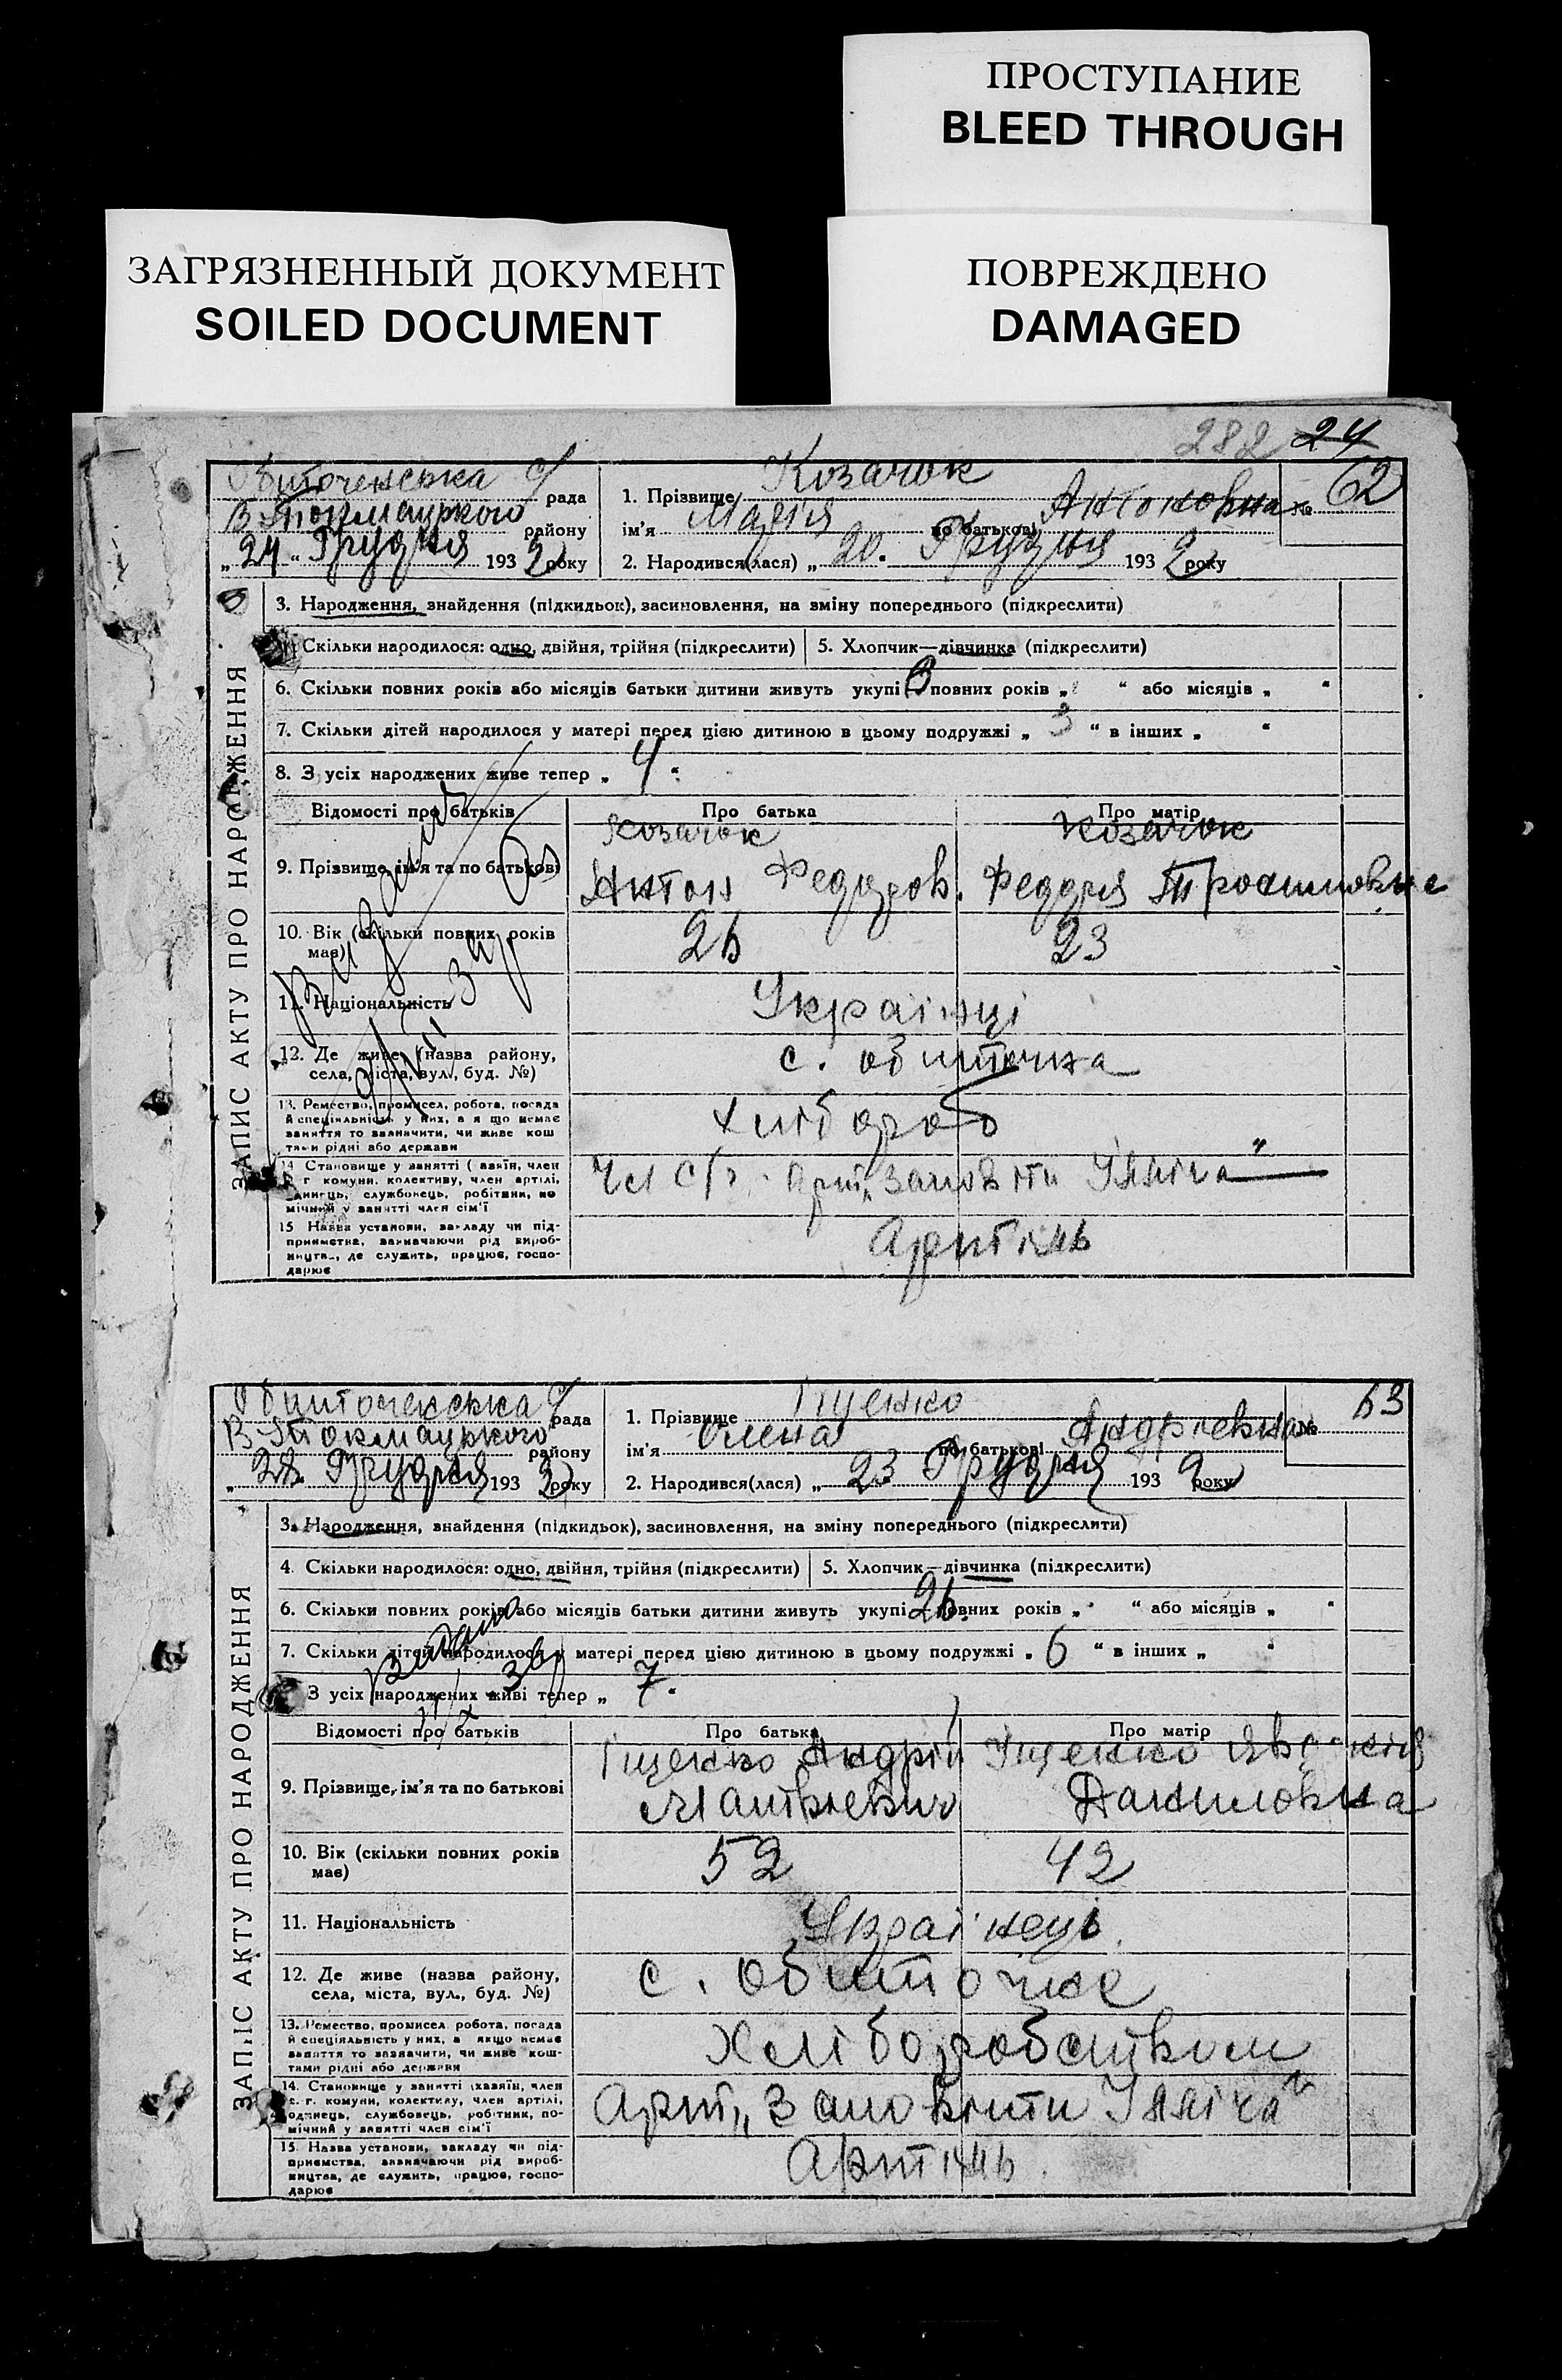 ПРОСТУПАНИЕ
BLEED THROUGH
ЗАГРЯЗНЕННЫЙ ДОКУМЕНТ
SOILED DOCUMENT
ПОВРЕЖДЕНО
DAMAGED
282 24
Обиточенська с/рада
В-Токмацького району
„24“ Грудня 1932 року
1. Прізвище Козачок
ім'я Марія по батькові Антоновна № 62
2. Народився(лася) „20. Грудня 1932 року
ЗАПИС АКТУ ПРО НАРОДЖЕННЯ
3. Народження, знайдення (підкидьок), засиновлення, на зміну попереднього (підкреслити)
Скільки народилося: одно, двійня, трійня (підкреслити) 5. Хлопчик—дівчинка (підкреслити)
6. Скільки повних років або місяців батьки дитини живуть укупі повних років „ “ або місяців „ “
7. Скільки дітей народилося у матері перед цією дитиною в цьому подружжі „ 3 “ в інших „ “
8. З усіх народжених живе тепер „ 4 “
Відомості про батьків Про батька Про матір
9. Прізвище, ім'я та по батькові
Козачок Козачок
Антон Федоров. Федора
10. Вік (скільки повних років має) 26 23
11. Національність Українці
12. Де живе (назва району, села, міста, вул., буд. №) с. Обиточна
13. Ремество, промисел, робота, посада
й спеціяльність у них, а я що немає
заняття то зазначити, чи живе кош
тами рідні або держави
Хлібороб
14 Становище у занятті (
г комуни, колективу, член артілі,
службовець, робітник, по
мічний у занятті член сім'ї
Чл с/г. Арт. „Заповіти Ілліча“
15 Назва установи, закладу чи під-
приємства, зазначаючи рід вироб-
ництва, де служить, працює, госпо-
дарює
Артіль
Обиточенська с/рада
В-Токмацького району
„ Грудня 1932 року
1. Прізвище Іщенко
ім'я Олена по батькові Андріевна № 63
2. Народився(лася) „ 23 Грудня 1932 року
ЗАПИС АКТУ ПРО НАРОДЖЕННЯ
3. Народження, знайдення (підкидьок), засиновлення, на зміну попереднього (підкреслити)
4. Скільки народилося: одно, двійня, трійня (підкреслити) 5. Хлопчик—дівчинка (підкреслити)
6. Скільки повних років або місяців батьки дитини живуть укупі 26. повних років „ “ або місяців „ “
7. Скільки дітей народилося у матері перед цією дитиною в цьому подружжі „ 6 “ в інших „ “
З усіх народжених живі тепер „ 7.
Відомості про батьків Про батька Про матір
9. Прізвище, ім'я та по батькові
Іщенко Андрій Іщенко
Матвіевич Даниловна
10. Вік (скільки повних років має) 52 42
11. Національність
12. Де живе (назва району, села, міста, вул., буд. №) с. Обиточне
13. Ремество, промисел робота, посада
й спеціяльність у них, а якщо немає
заняття то зазначити, чи живе кош-
тами рідні або держави
Хліборобством
14. Становище у занятті (хазяїн, член
с. г. комуни, колективу, член артілі,
одинець, службовець, робітник, по-
мічний у занятті член сім'ї
Арт. „Заповіти Ілліча“
15. Назва установи, закладу чи під-
приємства, зазначаючи рід вироб-
ництва, де служить, працює, госпо-
дарює
Артіль